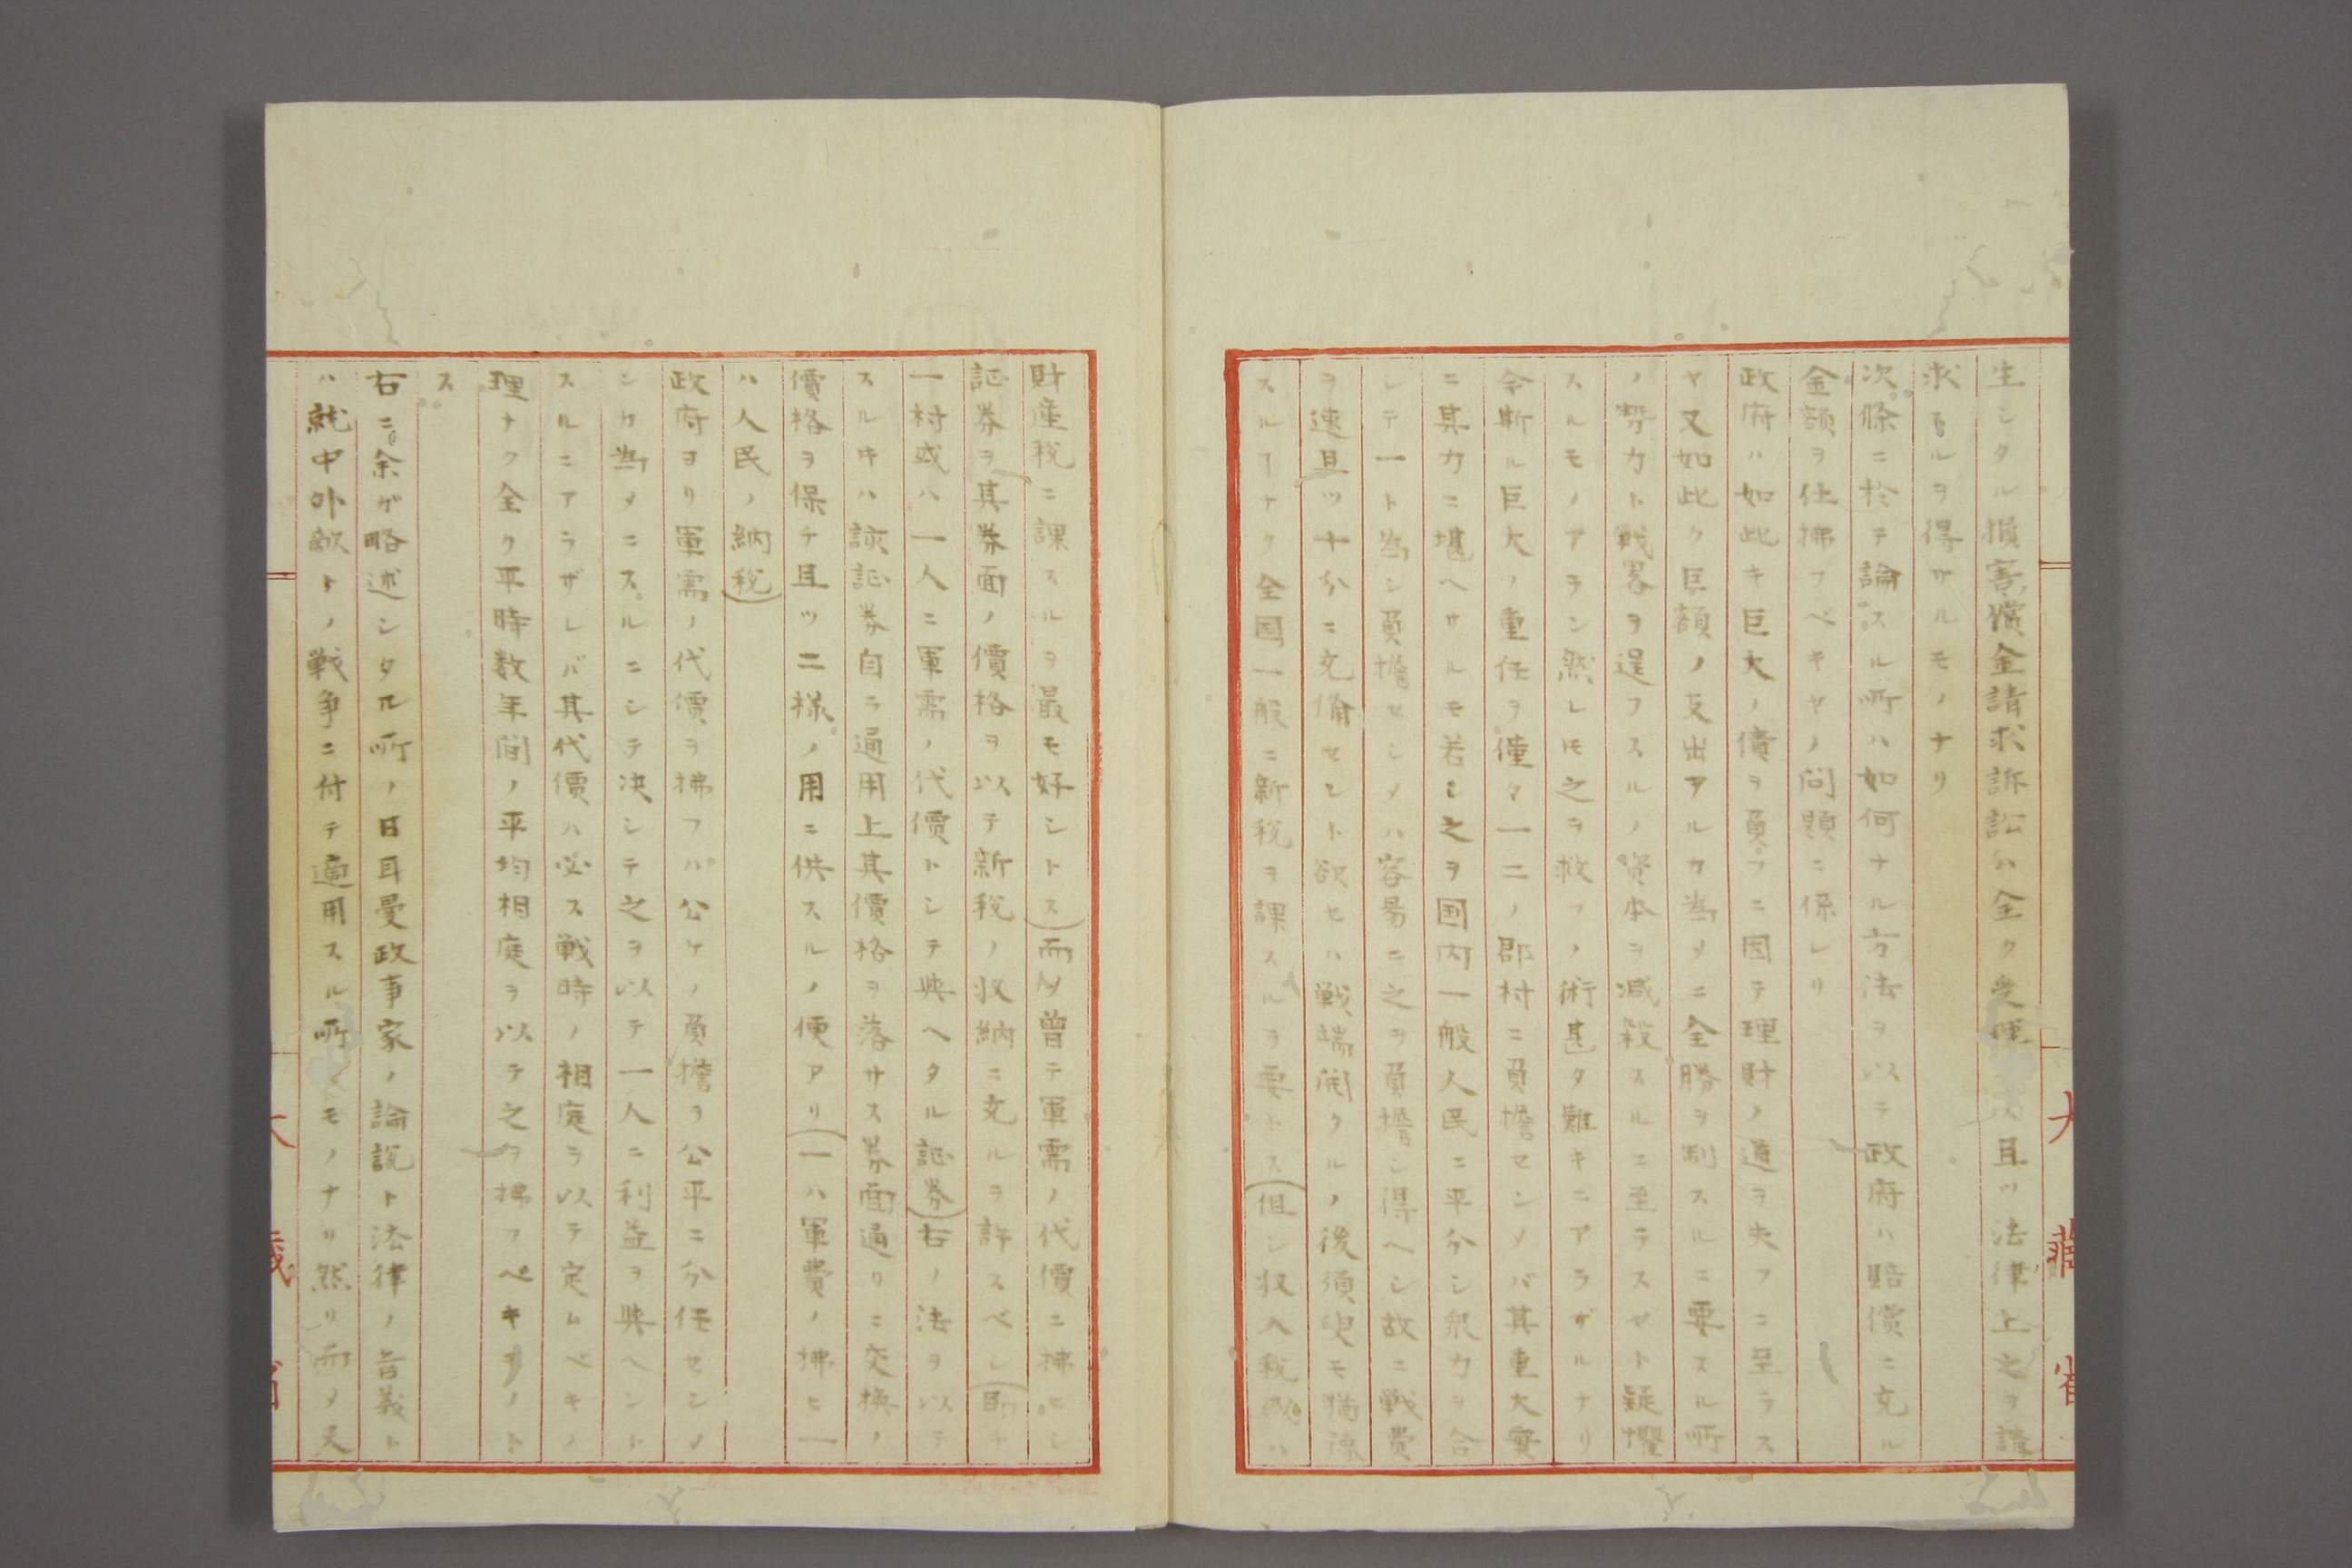 生シタル損害償金請求訴訟ハ全ク受理ハ且ツ法律上之ヲ請
求トルヲ得サルモノナリ
次條ニ於テ論スル所ハ如何ナル方法ヲ以テ政府ハ賠償ニ充ル
金額ヲ仕拂フベキヤノ問題ニ係レリ
政府ハ如此キ巨大ノ債ヲ負フニ因テ理財ノ道ヲ失フニ至ラス
ヤ又如此ク巨額ノ支出アルカ為メニ全勝ヲ制スルニ要スル所
ノ勢力ト戦畧ヲ逞フスルノ資本ヲ减殺スルニ至ラスヤト疑懼
スルモノアラン然レ𪜈之ヲ救フノ術甚タ難キニアラザルナリ
今斯ル巨大ノ重任ヲ僅々一二ノ郡村ニ負擔セシメバ其重大實
ニ其力ニ堪ヘサルモ若シ之ヲ国内一般人民ニ平分シ衆力ヲ合
シテ一ト為シ負擔セシメハ容易ニ之ヲ負擔シ得ヘシ故ニ戦費
ヲ速且ツ十分ニ充備セント欲セハ戦端開クルノ後須臾モ猶豫
スルヿナク全国一般ニ新税ヲ課スルヲ要トス(但シ収入税或ハ
財産税ニ課スルヲ最モ好シトス)而〆曽テ軍需ノ代價ニ拂ヒシ
証券ヲ其券面ノ價格ヲ以テ新税ノ収納ニ充ルヲ許スベシ(即チ
一村或ハ一人ニ軍需ノ代價トシテ與ヘタル証券)右ノ法ヲ以テ
スル𪜈ハ該証券自ラ通用上其價格ヲ落サス券面通リニ交換ノ
價格ヲ保チ且ツ二様ノ用ニ供スルノ便アリ(一ハ軍費ノ拂ヒ一
ハ人民ノ納税)
政府ヨリ軍需ノ代價ヲ拂フハ公ケノ負擔ヲ公平ニ分任セシメ
ンカ為メニスルニシテ决シテ之ヲ以テ一人ニ利益ヲ與ヘント
スルニアラザレバ其代價ハ必ス戦時ノ相庭ヲ以テ定ムベキノ
理ナク全ク平時数年間ノ平均相庭ヲ以テ之ヲ拂フベキヿノト
ス
右ニ余ガ略述シタル所ノ日耳曼政事家ノ論説ト法律ノ旨義ト
ハ就中外敵トノ戦争ニ付テ適用スル所モノナリ然リ而ヲ又
大藏省